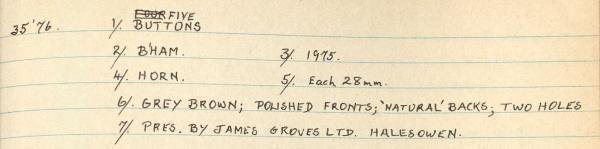 FOUR FIVE
35'76. 1/. BUTTONS
2/. B'HAM. 3/. 1975.
4/. HORN. 5/. Each 28mm.
6/. GREY BROWN; POLISHED FRONTS; 'NATURAL' BACKS; TWO HOLES
7/. PRES. BY JAMES GROVES LTD. HALESOWEN.